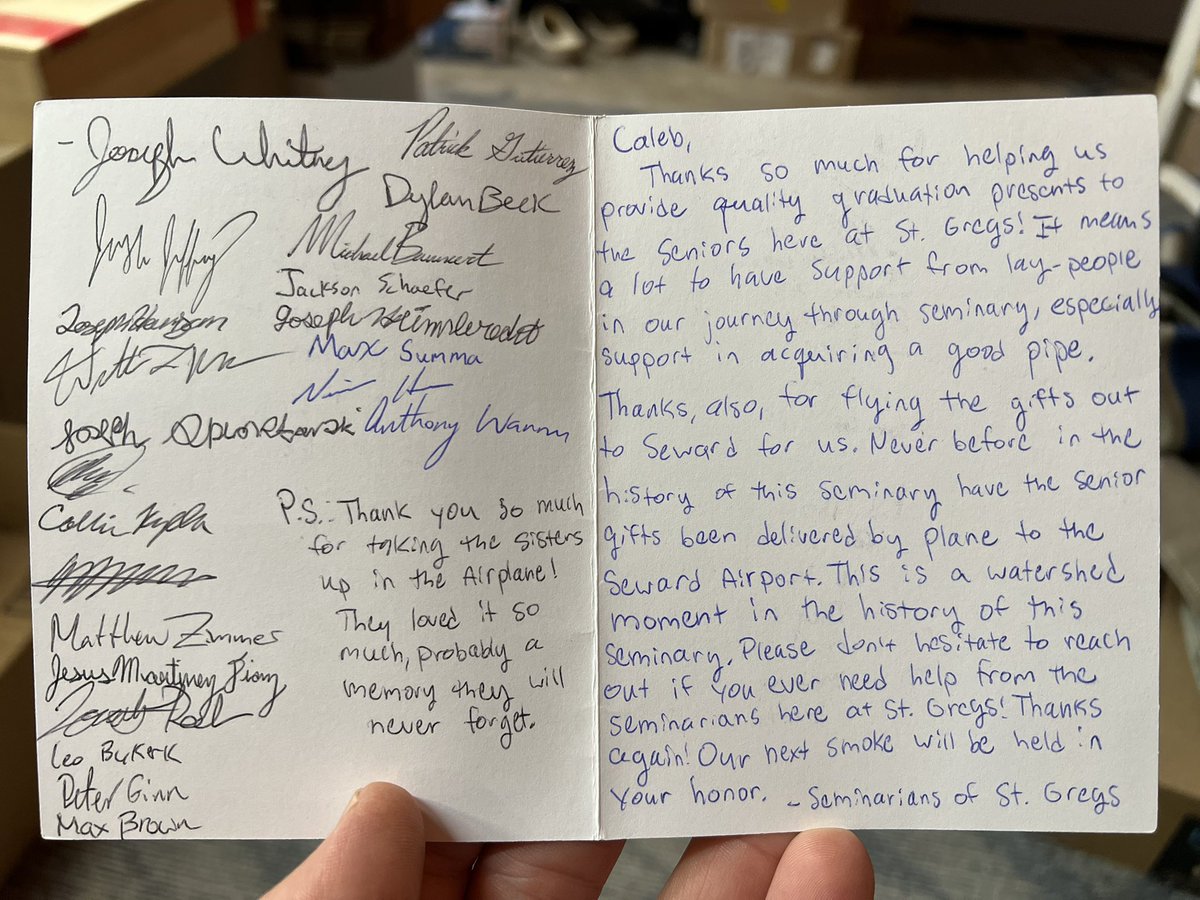 - Joseph Whitney
Patrick Gutierrez
Dylan Beck
Michael
Jackson Schaefer
Joseph
Max Summa
Anthony
Joseph
Collin
Matthew Zimmer
Jesus Martinez
Leo Bykerk
Peter Ginn
Max Brown
P.S.: Thank you so much
for taking the sisters
up in the Airplane!
They loved it so
much, probably a
memory they will
never forget.
Caleb,
Thanks so much for helping us
provide quality graduation presents to
the seniors here at St. Gregs! It means
a lot to have support from lay-people
in our journey through seminary, especially
support in acquiring a good pipe.
Thanks, also, for flying the gifts out
to Seward for us. Never before in the
history of this seminary have the senior
gifts been delivered by plane to the
Seward Airport. This is a watershed
moment in the history of this
seminary. Please don't hesitate to reach
out if you ever need help from the
seminarians here at St. Gregs! Thanks
again! Our next smoke will be held in
your honor. - Seminarians of St. Gregs